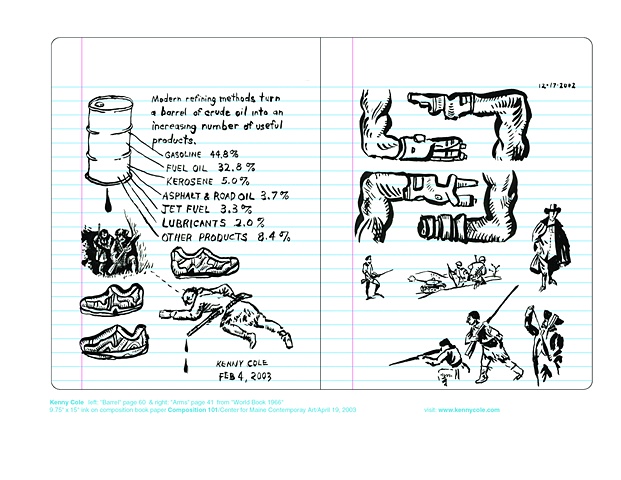 Modern refining methods turn
a barrel of crude oil into an
increasing number of useful
products.
GASOLINE 44.8%
FUEL OIL 32.8%
KEROSENE 5.0%
ASPHALT & ROAD OIL 3.7%
JET FUEL 3.3%
LUBRICANTS 2.0%
OTHER PRODUCTS 8.4%
KENNY COLE
FEB 4, 2003
12-17-2002
Kenny Cole left: "Barrel" page 60 & right: "Arms" page 41 from "World Book 1966"
9.75" x 15" ink on composition book paper Composition 101/Center for Maine Contemporay Art/April 19, 2003
visit: www.kennycole.com